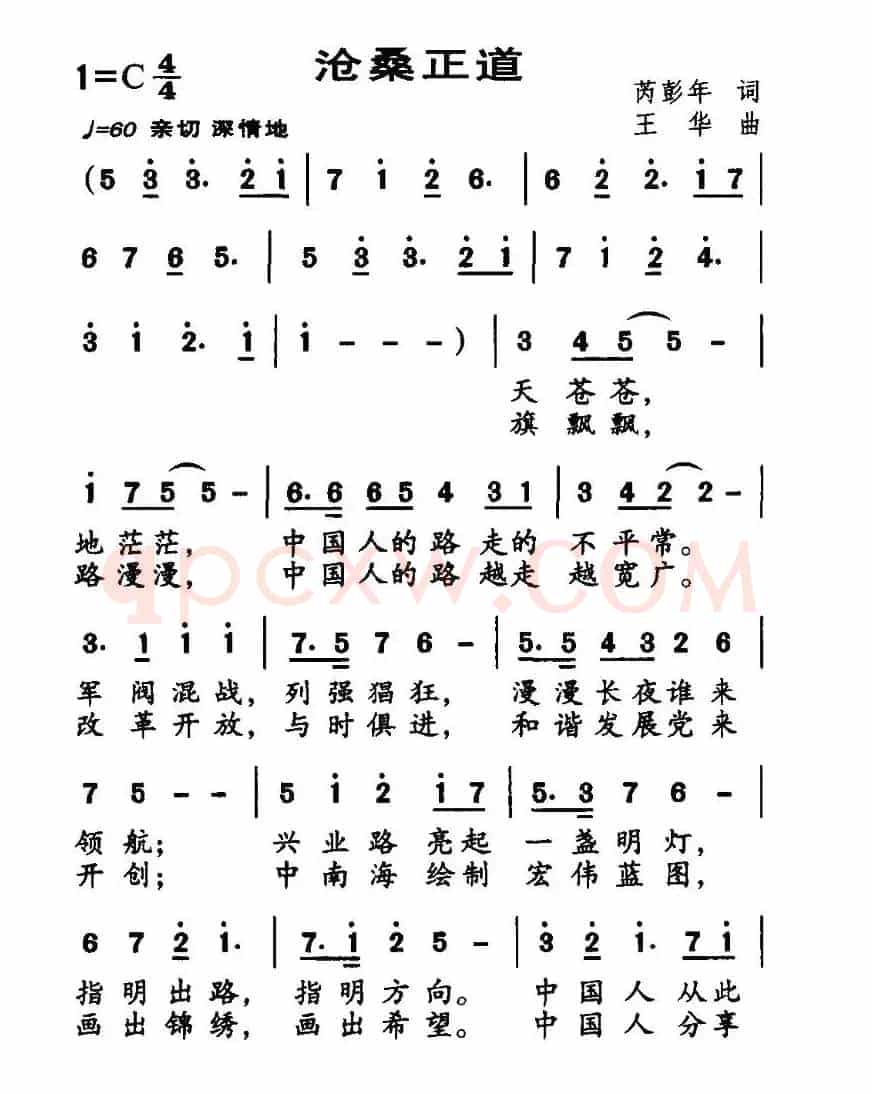 沧桑正道
1=C 4/4
芮彭年 词
♩=60 亲切 深情地
王 华 曲
(5 3̇ 3̇. 2̇ 1̇ | 7 1̇ 2̇ 6. | 6 2̇ 2̇. 1̇ 7 |
6 7 6 5. | 5 3̇ 3̇. 2̇ 1̇ | 7 1̇ 2̇ 4̇. |
3̇ 1̇ 2̇. 1̇ | 1̇ - - - ) | 3 4 5 5 - |
天 苍 苍,
旗 飘 飘,
1̇ 7 5 5 - | 6. 6 6 5 4 3 1 | 3 4 2 2 - |
地 茫 茫, 中 国 人 的 路 走 的 不 平 常。
路 漫 漫, 中 国 人 的 路 越 走 越 宽 广。
qpcxw.COM
3. 1 1̇ 1̇ | 7. 5 7 6 - | 5. 5 4 3 2 6 |
军 阀 混 战, 列 强 猖 狂, 漫 漫 长 夜 谁 来
改 革 开 放, 与 时 俱 进, 和 谐 发 展 党 来
7 5 - - | 5 1̇ 2̇ 1̇ 7 | 5. 3 7 6 - |
领 航; 兴 业 路 亮 起 一 盏 明 灯,
开 创; 中 南 海 绘 制 宏 伟 蓝 图,
6 7 2̇ 1̇. | 7. 1̇ 2̇ 5 - | 3̇ 2̇ 1̇. 7 1̇ |
指 明 出 路, 指 明 方 向。 中 国 人 从 此
画 出 锦 绣, 画 出 希 望。 中 国 人 分 享